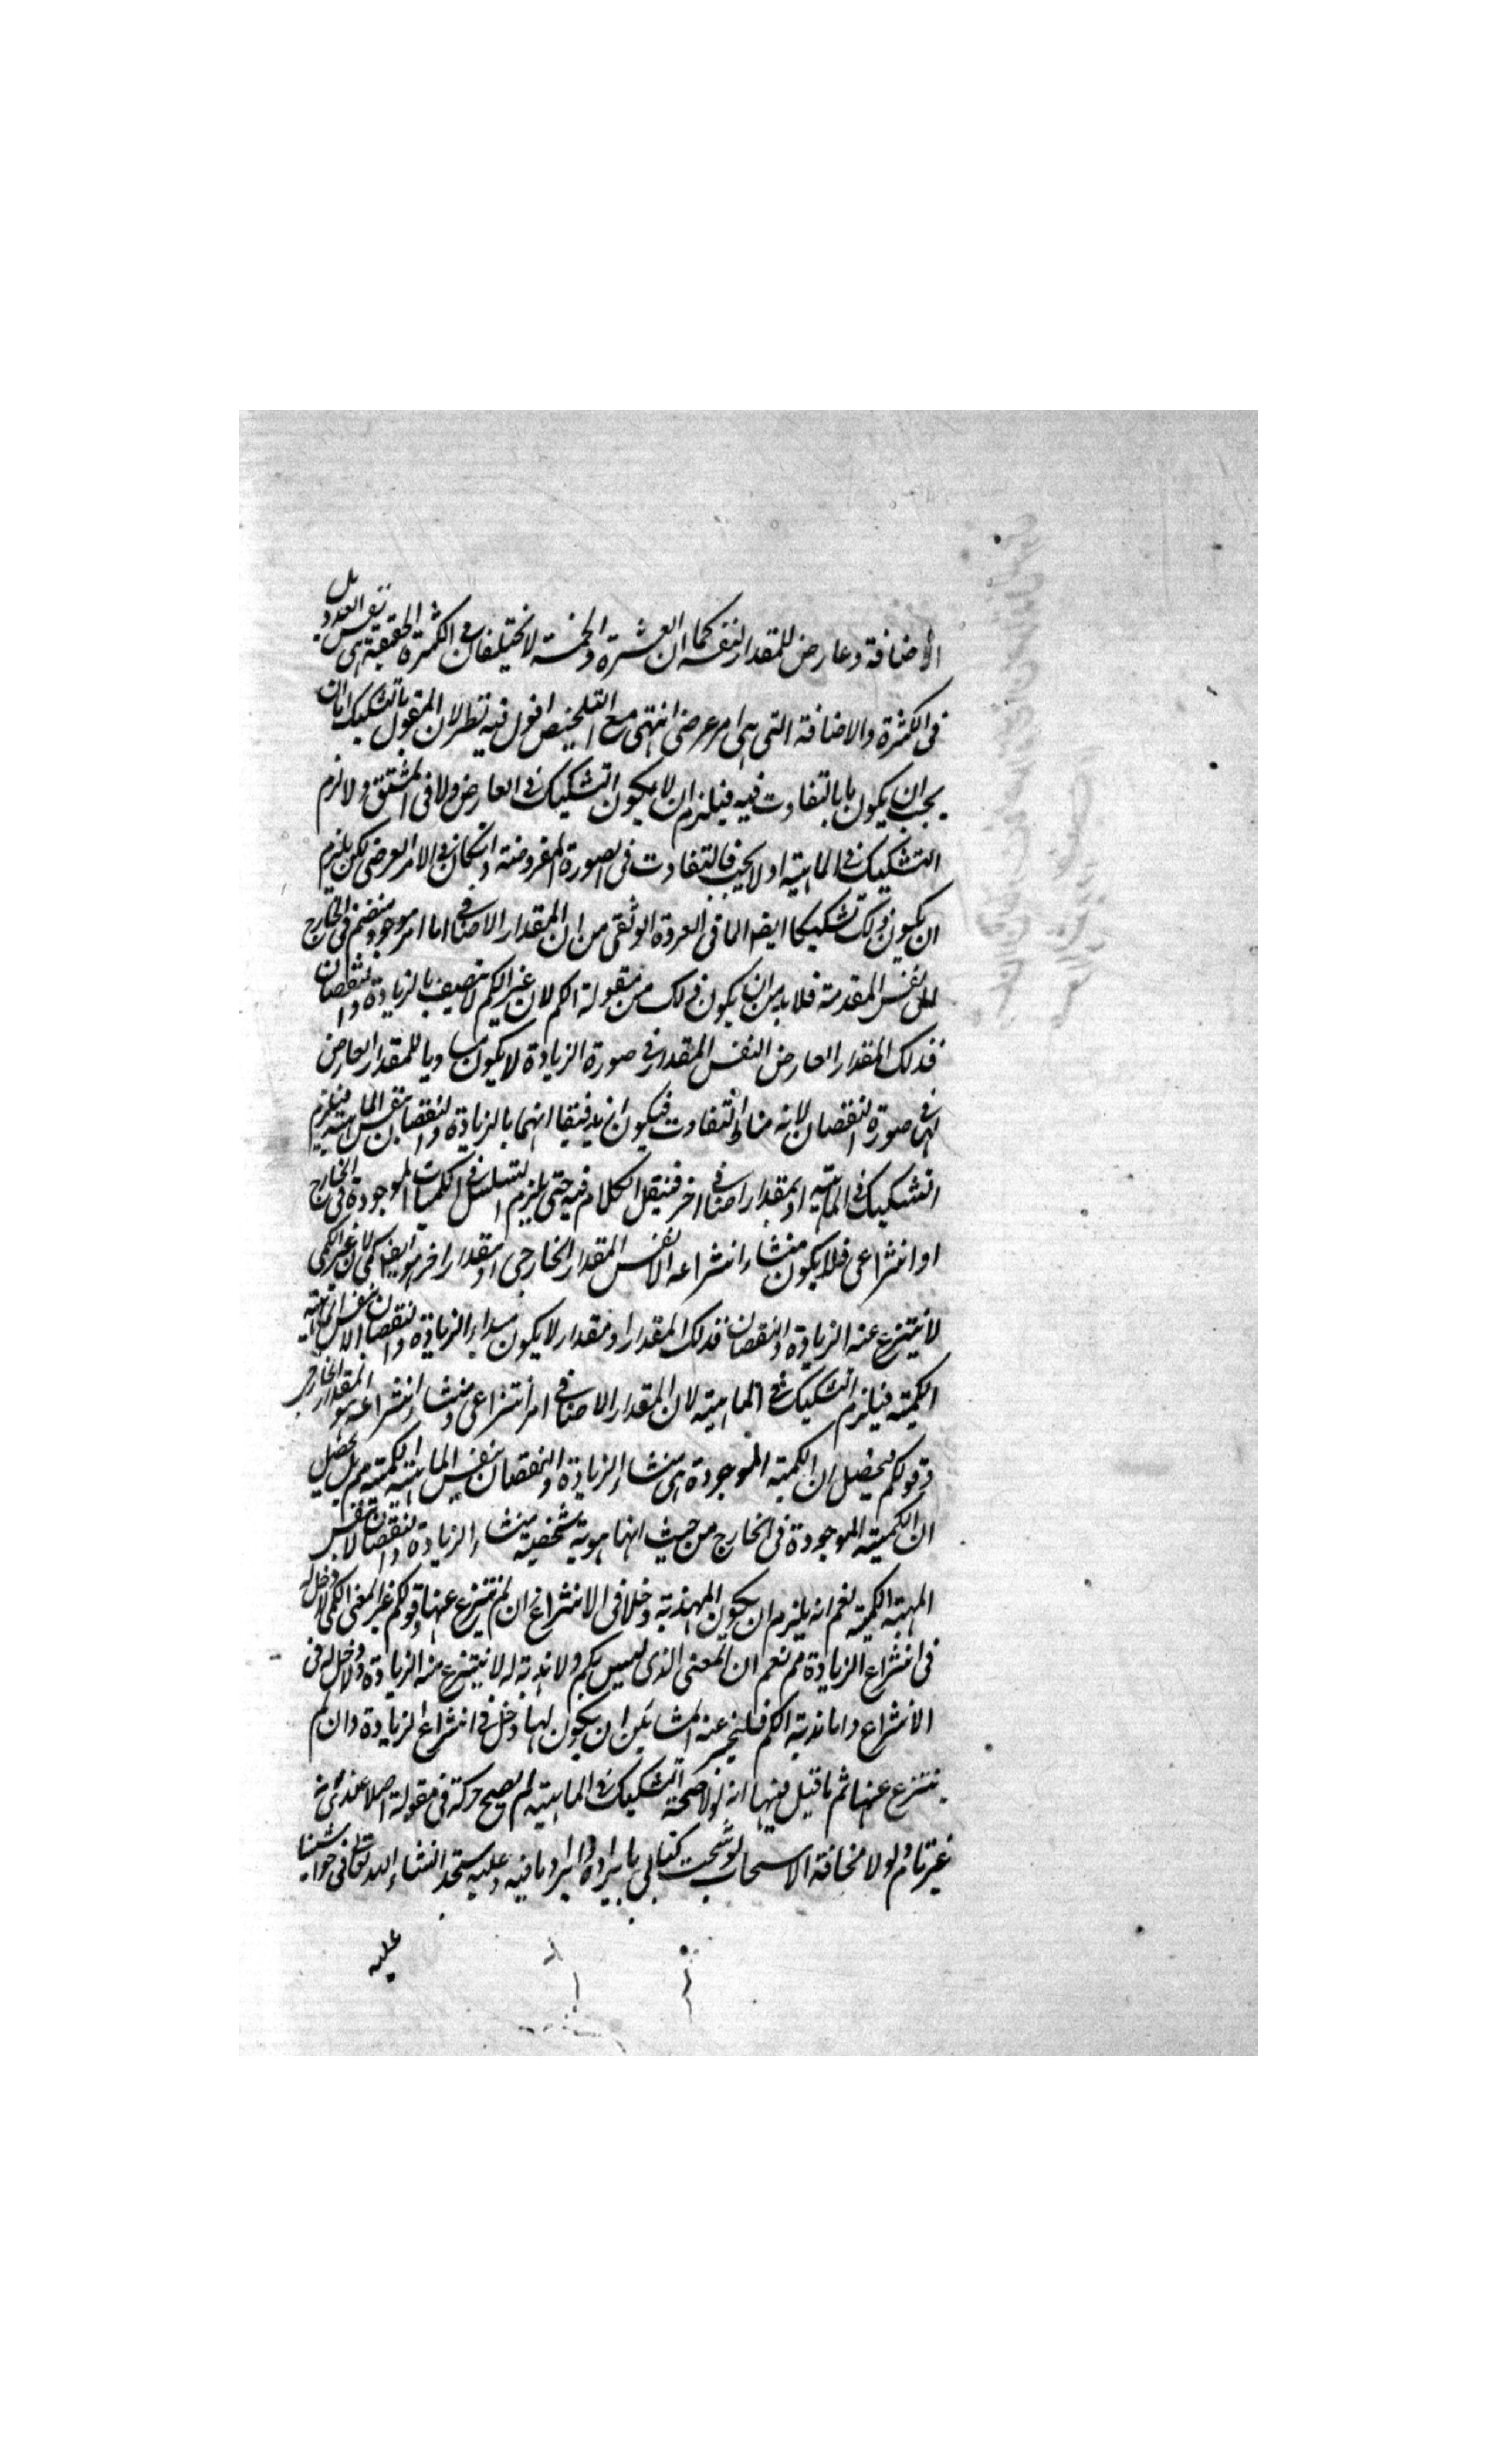 الاضافة وعارض للمقدار لنفسه كما ان العشرة والخمسة لا تختلفان فى الكثرة الحقيقية هى نفس العدد بل
فى الكثرة والاضافة التى هى امر عرضى انتهى مع التلخيص اقول فيه نظر لان المقول بالتشكيك اما ان
يجب ان يكون ما بالتفاوت فيه فيلزم ان لا يكون التشكيك فى العارض ولا فى المشتق ولا لزم
التشكيك فى الماهية او لا يجب فالتفاوت فى الصورة المفروضة وان كان فى الامر العرضى لكن يلزم
ان يكون ذلك تشكيكا ايضا لما فى العروة الوثقى من ان المقدار الاضافى اما امر موجود منضم فى الخارج
نفس المقدمة فلا بد من ان يكون ذلك من مقولة الكم لان غير الكم لا يتصف بالزيادة والنقصان
فذلك المقدار العارض النفس المقدار فى صورة الزيادة لا يكون مساويا للمقدار العارض
فى صورة النقصان لانه مناط التفاوت فيكون انهما بالزيادة والنقصان بنفس الماهية فيلزم
التشكيك فى الماهية او بمقدار اضافى اخر فننقل الكلام فيه حتى يلزم التسلسل فى الكميات الموجودة فى الخارج
او انتزاعى فلا يكون منشاء انتزاعه الا نفس المقدار الخارجى او مقدار اخر هو ايضا كمى لان غير الكمى
لا ينتزع عنه الزيادة والنقصان فذلك المقدار او مقدار لا يكون مبداء الزيادة والنقصان الا بنفس الماهية
الكمية فيلزم التشكيك فى الماهية لان المقدار الاضافى امر انتزاعى ومنشاء انتزاعه هو المقدار الخارجى
وقولكم يحصل ان الكمية الموجودة هى منشاء الزيادة والنقصان بنفس الماهية الكمية مم بل يحصل
ان الكمية الموجودة فى الخارج من حيث انها هوية شخصية منشاء الزيادة والنقصان لا بنفس
المهية الكمية نعم انه يلزم ان يكون المهذية دخلا فى الانتزاع ان لم ينتزع عنها وقولكم غير المعنى الكمى لا دخل له
فى انتزاع الزيادة مم نعم ان المعنى الذى ليس بكم ولا هذية له لا ينتزع منه الزيادة ولا دخل له فى
الانتزاع واما هذية الكم فـ عند المشائين ان يكون لها دخل فى انتزاع الزيادة وان لم
ينتزع عنها ثم ما قيل فيها انه لو لا صحة التشكيك فى الماهية لم يصح حركة فى مقولة اصلا عندى انه
غير تام ولو لا مخافة الاسهاب لوشحت كتابى بايراده وايراد ما فيه وعليه ستجد انشاء الله تعالى فى حواشينا
عليه